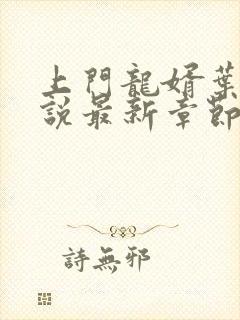 上門龍婿葉
說最新章節
詩無邪